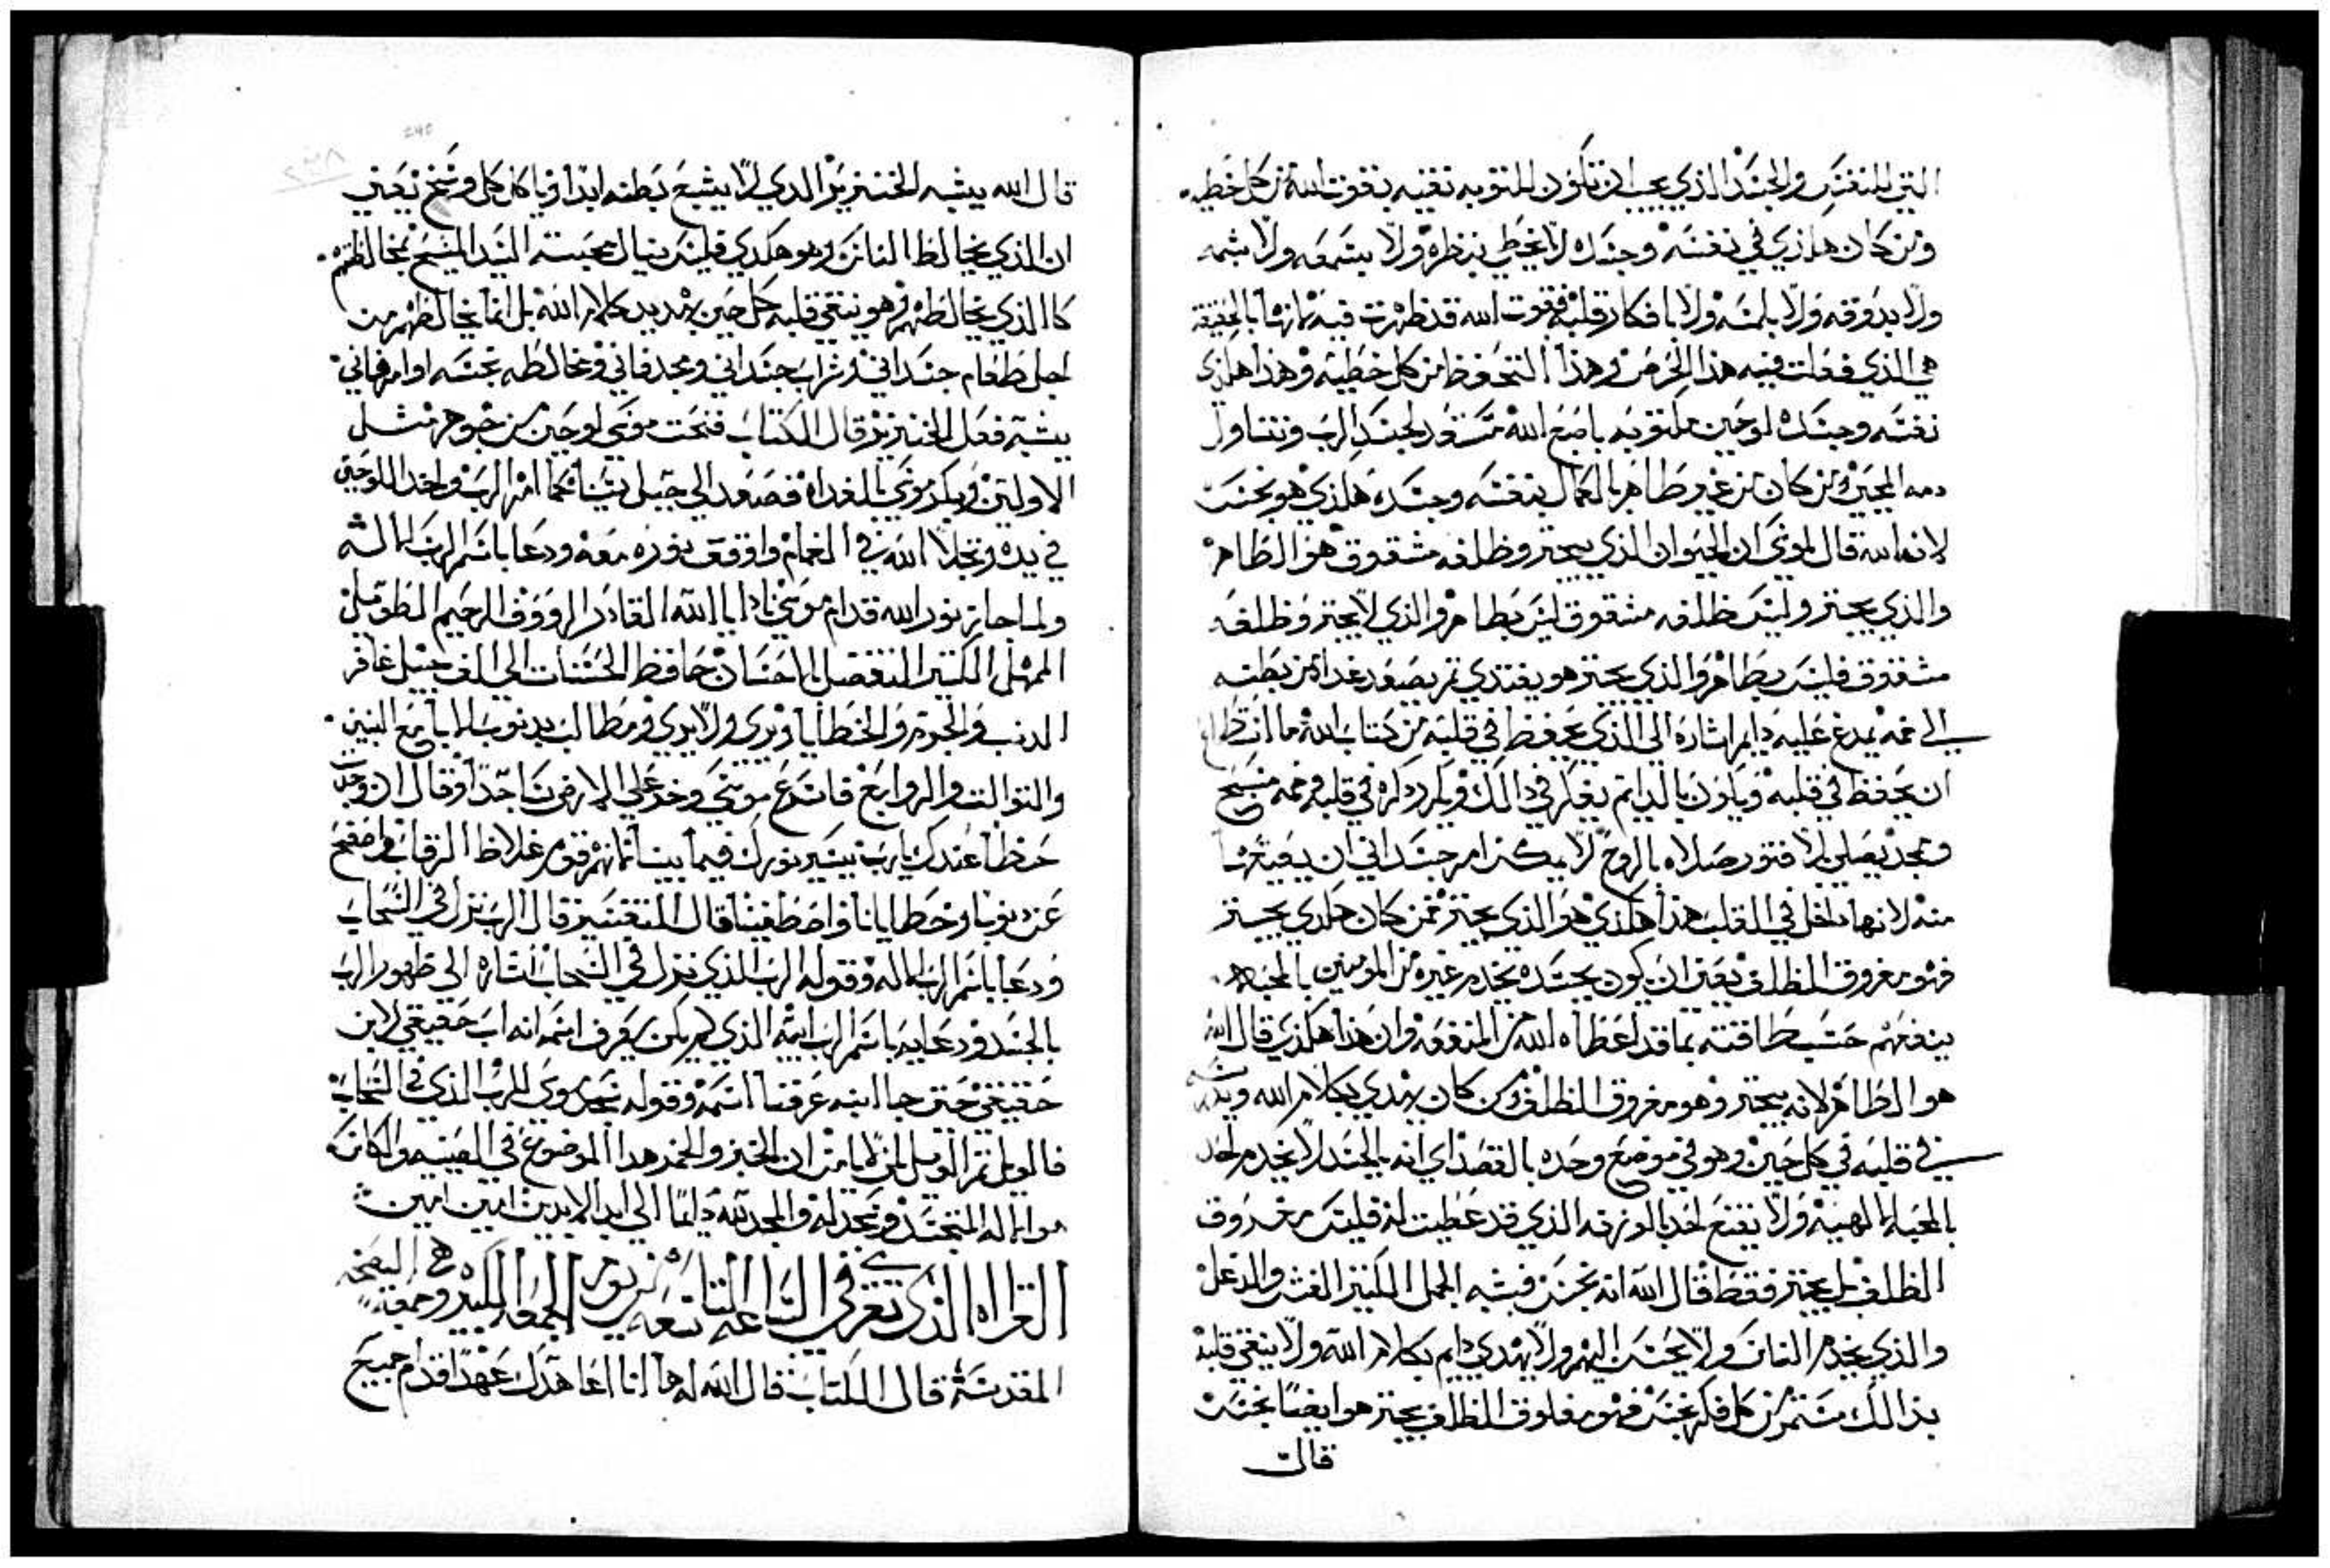 التي للنفس والجسد الذي يجب ان تكون للتوبه نقيه بقوت الله من كل خطيه
ومن كان هاكذي في نفسه وجسده لا يخطي بنظره ولا بسمعه ولا بشمه
ولا بدوقه ولا بلمسه ولا بافكار قلبه فقوت الله قد ظهرت فيه لانها بالحقيقه
هي الذي فعلت فيه هذا الحرص وهذا التحفظ من كل خطيه وهذا هاكذي
نفسه وجسده لوحين مكتوبه باصبع الله مستعد لجسد الرب وتتناول
دمه المحيي ومن كان من غير طاهر بالكمال بنفسه وجسده هاكذي هو نجس
لان الله قال لموسى ان الحيوان الذي يجتر وظلفه مشقوق هو الطاهر
والذي يجتر وليس ظلفه مشقوق ليس بطاهر والذي لا يجتر وظلفه
مشقوق فليس بطاهر والذي يجتر هو يغتدي ثم يصعد غداه من بطنه
الى فمه يمدغ عليه دايم اشاره الى الذي يحفظ في قلبه من كتاب الله ما استطاع
ان يحفظ في قلبه ويكون بالدايم يفكر في دالك ويكرر دكره في قلبه وفمه مسبح
وممجد يصلي بلا فتور صلاه بالروح لا يمكن امر جسداني ان يمنعه
منه لانها داخل في القلب هذا هاكذي هو الذي يجتر فمن كان هاكدي يجتر
فهو مفروق الظلف يعني ان يكون بجسده يخدم غيره من المومنين بالمحبه
ينفعهم حسب طاقته بما قد اعطاه الله من المنفعه وان هذا هاكذي قال الله
هو الطاهر لانه يجتر وهو مفروق الظلف ومن كان يهدي بكلام الله
في قلبه في كل حين وهو في موضع وحده بالقصد اي انه بالجسد لا يخدم احد
بالمحبه الالهيه ولا ينفع احد بالوزنه الذي قد عطيت له فليس مفروق
الظلف بل يجتر فقط قال الله انه نجس فيشبه الجمل الكتير الغش والدغل
والذي يخدم الناس ولا يحسن اليهم ولا يهدي دايم بكلام الله ولا ينقي قلبه
بذالك مستمر من كل فكر نجس فهو مفلوق الظلف يجتر هو ايضا نجس
قال
قال الله يشبه الخنزير الدي لا يشبع بطنه ابدا وياكل كل وسخ يعني
ان الذي يخالط الناس وهو هكدي فليس ينال محبته السيد المسيح بمخالطتهم
كالذي يخالطهم وهو ينقي قلبه كل حين بهديد كلام الله بل انما يخالطهم من
اجل طعام جسداني وشراب جسداني ومجد فاني ومخالطه نجسه او امر فاني
يشبه فعل الخنزير قال الكتاب فنحت موسى لوحين من جوهر مثل
الاولتين وبكر موسى بالغداه فصعد الى جبل سينا كما امره الرب واخد اللوحين
في يده وتجلا الله في الغمام واوقف نوره معه ودعا باسم الرب الاله
ولما جاز نور الله قدام موسى نادا يا الله القادر الرووف الرحيم الطويل
المهل الكتير المتفضل بالاحسان حافظ الحسنات الى الف جيل غافر
الدنب والجرم والخطايا ويري ولا يبري ومطالب بدنوب الابا مع البنين
والتوالت والروابع فاسرع موسى وخر على الارض ساجدا وقال ان وجدت
حظا عندك يارب يسير نورك فيما بيننا لانهم قوم غلاظ الرقاب واصفح
عن دنوبنا وخطايانا واصطفينا قال المفسر قال الرب نزل في السحاب
ودعا باسم الرب الاله وقوله الرب الذي نزل في السحاب اشاره الى ظهور الرب
بالجسد ودعايه باسم الرب ابيه الذي لم يكن يعرف اسمه انه اب حقيقي لابن
حقيقي حتى جا ابنه عرفنا اسمه وقوله سجد موسى للرب الذي في السحاب
فالويل تم الويل لمن لا يامن ان الخبز والخمر هدا الموضوع في الصينيه والكاس
هو الاله المتجسد ونسجد له والمجد لله دايما الى ابد الابدين امين امين
القراه الذي تقرى في الساعه التاسعه من يوم الجمعه الكبيره وهي البصخه وجمعه
المقدسه قال الكتاب قال الله له ها انا اعاهدك عهدا قدام جميع